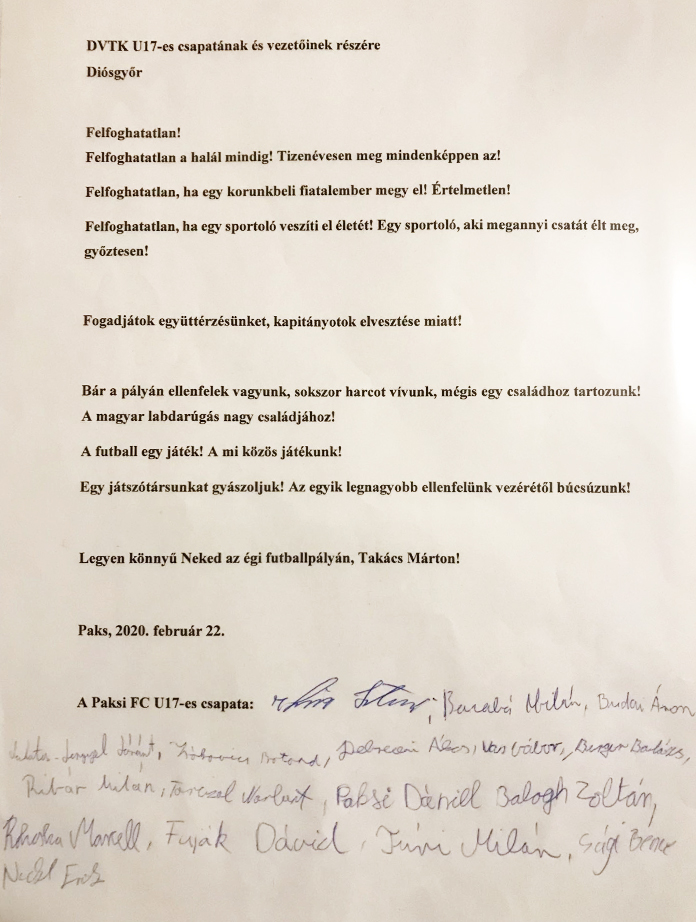 DVTK U17-es csapatának és vezetőinek részére
Diósgyőr
Felfoghatatlan!
Felfoghatatlan a halál mindig! Tizenévesen meg mindenképpen az!
Felfoghatatlan, ha egy korunkbeli fiatalember megy el! Értelmetlen!
Felfoghatatlan, ha egy sportoló veszíti el életét! Egy sportoló, aki megannyi csatát élt meg,
győztesen!
Fogadjátok együttérzésünket, kapitányotok elvesztése miatt!
Bár a pályán ellenfelek vagyunk, sokszor harcot vívunk, mégis egy családhoz tartozunk!
A magyar labdarúgás nagy családjához!
A futball egy játék! A mi közös játékunk!
Egy játszótársunkat gyászoljuk! Az egyik legnagyobb ellenfelünk vezérétől búcsúzunk!
Legyen könnyű Neked az égi futballpályán, Takács Márton!
Paks, 2020. február 22.
A Paksi FC U17-es csapata: Milán, Budai Áron
Debreceni Ákos, Vas Gábor, Burger Balázs,
Ribár Milán, Tarczal Norbert, Paksi Dániel Balogh Zoltán,
Marcell, Fuják Dávid, Túri Milán, Sági Bence